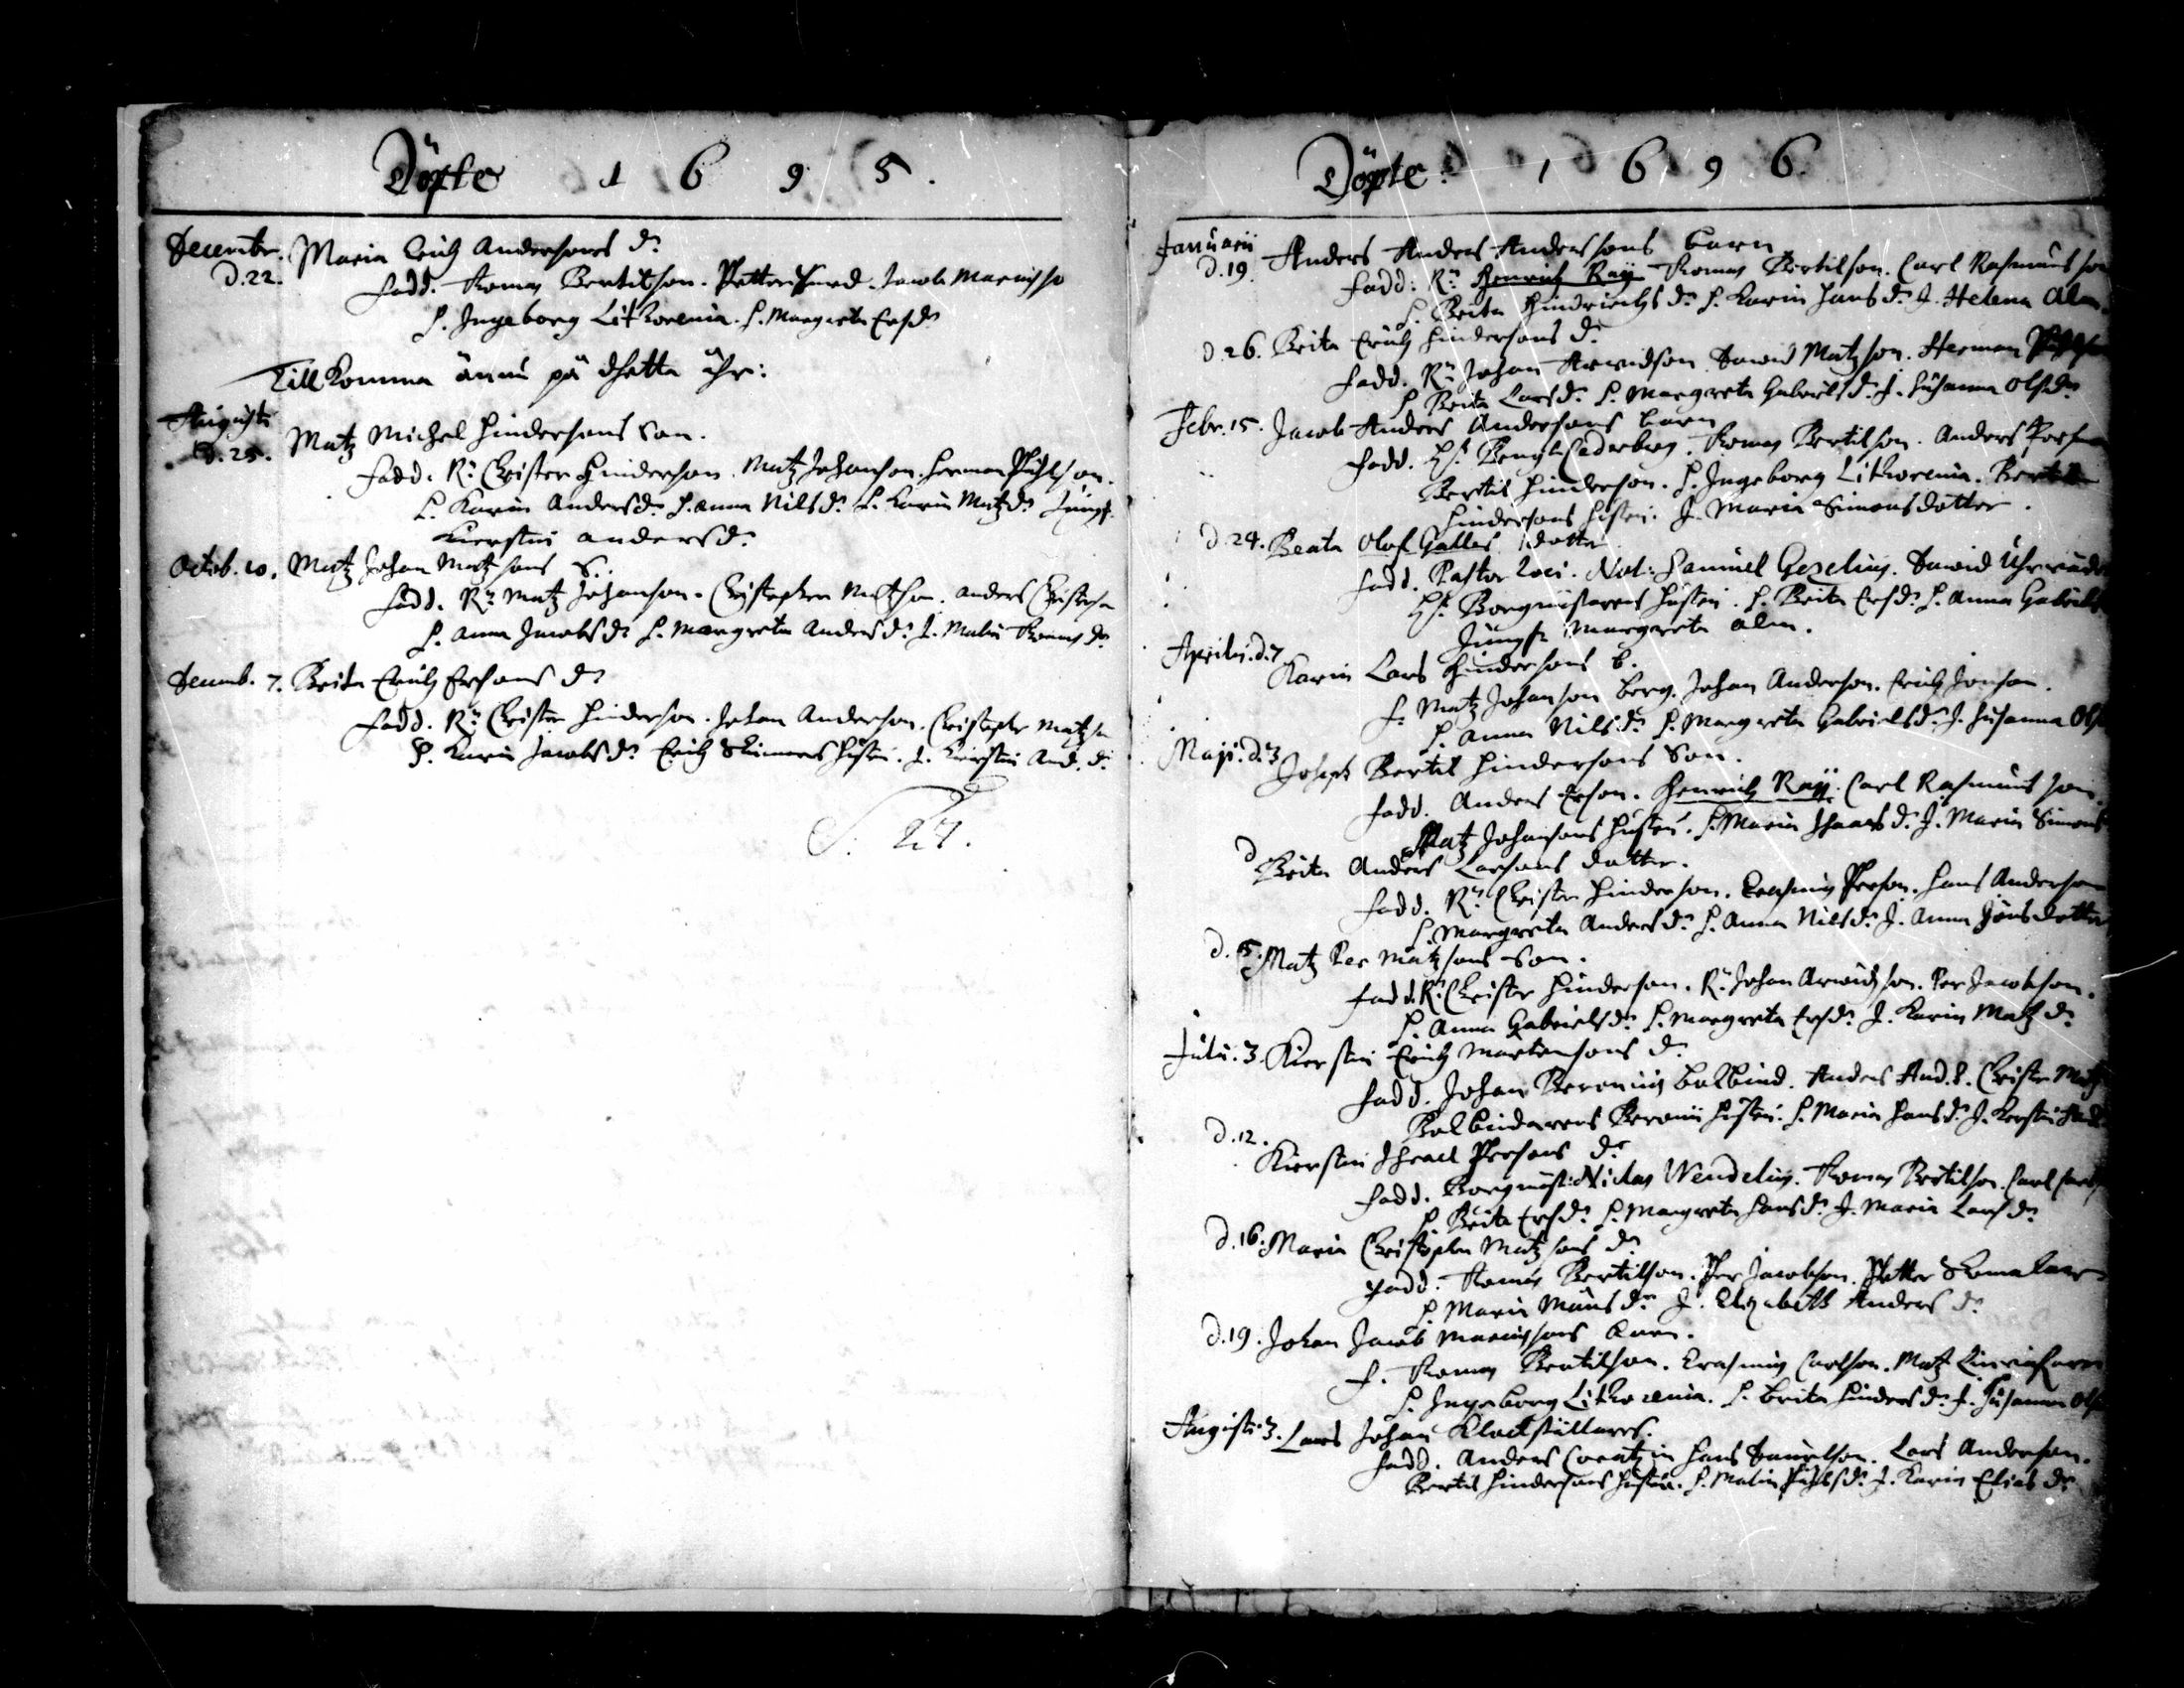 Döpte 1 6 9 5.
Decembr. Maria Erich Andersons d:
d. 22.
Fadd. Thomas Bertilson. Petter Jacob Marcusso
H. Ingeborg Lithovenia. H. Margreta Ersd:
Till komma ännu på dhetta åhr:
Augusti
d. 25. Matz Michel Hindersons Son.
Fadd. R: Christer Hinderson. Matz Johanson. Herman Påhlson.
H. Karin Andersd: H. Anna Nilsd: H. Karin Matzd: Jungf.
Kierstin Andersd:
Octob. 10. Matz Johan Matzsons S.
Fadd. R: Matz Johanson. Christopher Matzson. Anders Christerson
H. Anna Jacobsd: H. Margreta Andersd: J. Malin Thomasd:
Decemb. 7. Brita Erich Ersons d:
Fadd. R: Christer Hinderson. Johan Anderson. Christopher Matzson
H. Karin Jacobsd: Erich Skinnares Hustru. J. Kierstin And. d:
S. 27.
Döpte. 1 6 9 6.
Januarii
d. 19. Anders Anders Anderssons barn
Fadd: R: Henrich Raij Thomas Bertilson. Carl Rasmusson
H. Brita Hindrichsd: H. Karin Hansd: J. Helena Alm.
d. 26. Brita Erich Hindersons d:
Fadd. R: Johan Arwidson David Matzson. Herman Påhlson
H. Brita Larsd: H. Margreta Gabrielsd: J. Susanna Olsd:
Febr. 15. Jacob Anders Andersons barn
Fadd. H: Bengt Cederberg. Thomas Bertilson. Anders
Bertil Hinderson. H. Ingeborg Lithovenia. Bertil
Hindersons Hustru. J. Maria Simonsdotter.
d. 24. Beata Olof Galles dotter
Fadd. Pastor Loci. Not: Samuel Gezelius. David Uhrwäder
H: Borgmästarens Hustru. H. Brita Ersd: H. Anna Gabriels
Jungf. Margreta Alm.
Aprilis. d. 7 Karin Lars Hindersons b.
F. Matz Johanson Berg. Johan Anderson. Erich Jonson.
H. Anna Nilsd: H. Margreta Gabrielsd: J. Susanna Ols
Maji. d. 3 Joseph Bertil Hindersons Son.
Fadd. Anders Erson. Henrich Raij. Carl Rasmusson.
Matz Johansons Hustru. H. Maria d: J. Maria Simons
d Brita Anders Larsons dotter.
Fadd. R: Christer Hinderson. Erasmus Person. Hans Anderson
H. Margreta Andersd: H. Anna Nilsd: J. Anna Jönsdotter
d. 5. Matz Per Matzsons Son.
Fadd. R: Christer Hinderson. R: Johan Arwidson. Per Jacobson.
H. Anna Gabrielsd: H. Margreta Ersd: J. Karin Matzd:
Julii. 3. Kierstin Erich Martensons d:
Fadd. Johan Beronius Bokbind. Anders And. S. Christer Matz
Bokbindarens Beronii Hustru. H. Maria Hansd: J. Kerstin
d. 12. Kierstin Israel Persons d:
Fadd. Borgmäst: Niclas Wendelius. Thomas Bertilson. Carl
H. Brita Ersd: H. Margreta Hansd: J. Maria Larsd:
d. 16. Maria Christopher Matzsons d:
Fadd. Thomas Bertilson. Per Jacobson. Petter Skomakare
H. Maria Månsd: J. Elizabeth Andersd:
d. 19. Johan Jacob Marcussons barn.
F. Thomas Bertilson. Erasmus Carlson. Matz
H. Ingeborg Lithovenia. H. Brita Hindersd: J. Susanna Ols
Augusti. 3. Lars Johan Klockställares.
Fadd. Anders Hans Danielson. Lars Anderson.
Bertil Hindersons Hustru. H. Malin Påhlsd: J. Karin Eliasd: